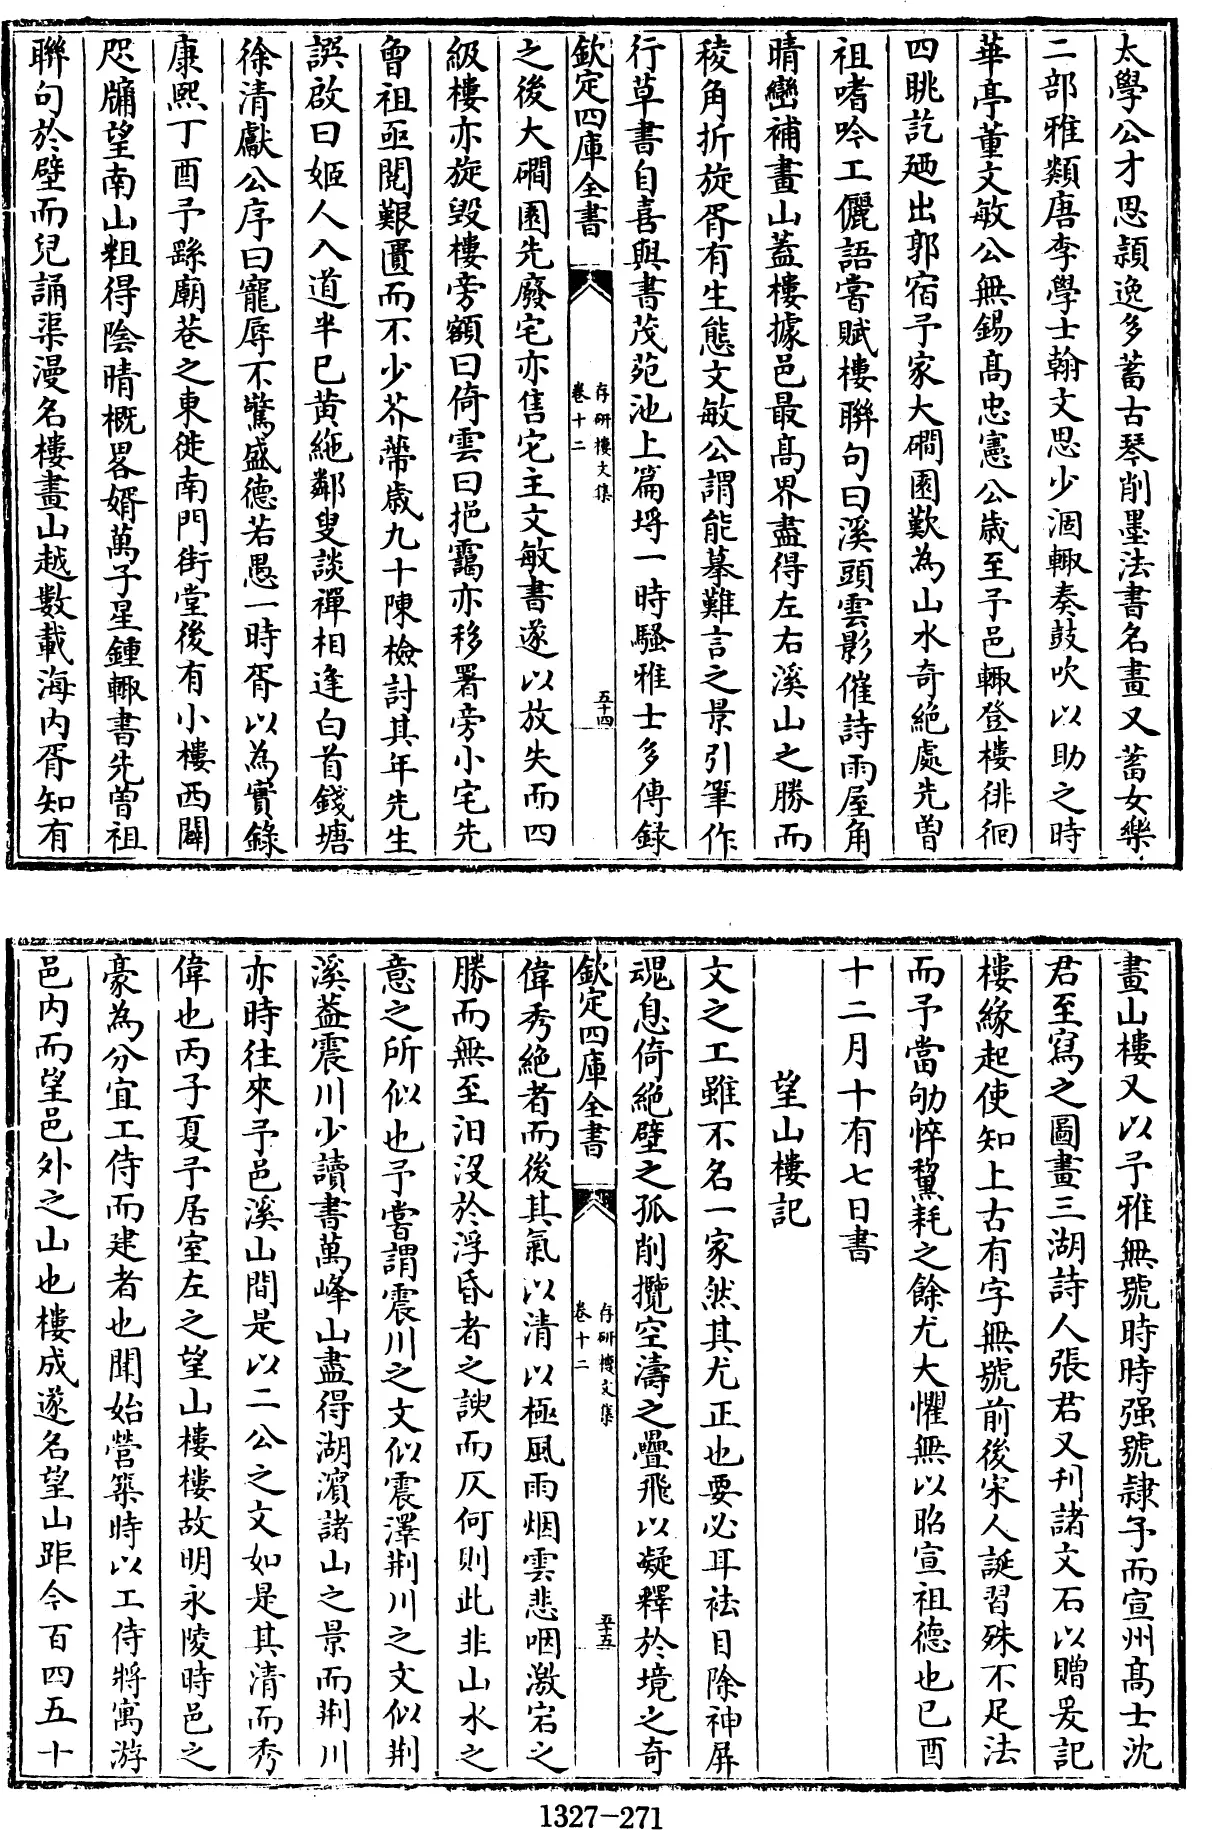 太學公才思穎逸多蓄古琴削墨法書名畫又蓄女樂
二部雅類唐李學士翰文思少涸輙奏鼓吹以助之時
華亭董文敏公無錫高忠憲公歲至予邑輙登樓徘徊
四眺訖廼出郭宿予家大磵園歎為山水奇絶處先曾
祖嗜吟工儷語嘗賦樓聨句曰溪頭雲影催詩雨屋角
晴巒補畫山蓋樓據邑最髙界盡得左右溪山之勝而
稜角折旋胥有生態文敏公謂能摹難言之景引筆作
行草書自喜與書茂苑池上篇埒一時騷雅士多傳録
欽定四庫全書
存研樓文集
卷十二
五十四
之後大磵園先廢宅亦售宅主文敏書遂以放失而四
級樓亦旋毀樓旁額曰倚雲曰挹靄亦移署旁小宅先
曾祖亟閲艱匱而不少芥蔕歲九十陳檢討其年先生
譔啟曰姬人入道半已黄絁鄰叟談禪相逢白首錢塘
徐清獻公序曰寵辱不驚盛德若愚一時胥以為實錄
康熙丁酉予繇廟巷之東徙南門街堂後有小樓西闢
咫牖望南山粗得隂晴概畧婿萬子星鍾輙書先曾祖
聨句於壁而兒誦渠漫名樓畫山越數載海内胥知有
畫山樓又以予雅無號時時强號隷予而宣州髙士沈
君至寫之圖畫三湖詩人張君又刋諸文石以贈爰記
樓緣起使知上古有字無號前後宋人誕習殊不足法
而予當劬悴黧耗之餘尤大懼無以昭宣祖德也已酉
十二月十有七日書
望山樓記
文之工雖不名一家然其尤正也要必耳袪目除神屏
魂息倚絶壁之孤削攬空濤之疊飛以凝釋於境之奇
欽定四庫全書
存研樓文集
卷十二
五十五
偉秀絶者而後其氣以清以極風雨烟雲悲咽激宕之
勝而無至汨沒於浮昏者之諛而仄何則此非山水之
意之所似也予嘗謂震川之文似震澤荆川之文似荆
溪葢震川少讀書萬峰山盡得湖濱諸山之景而荆川
亦時往來予邑溪山間是以二公之文如是其清而秀
偉也丙子夏予居室左之望山樓樓故明永陵時邑之
豪為分宜工侍而建者也聞始營築時以工侍將寓游
邑内而望邑外之山也樓成遂名望山距今百四五十
1327-271